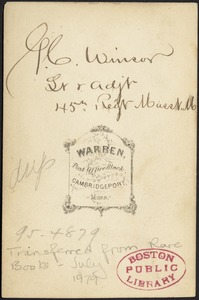 J. C. Winsor
Lt & Adjt
45th Regt Mass V. M.
WARREN,
Post Office Block
CAMBRIDGEPORT,
Mass.
95.4879
Transferred from Rare
Books - July
1979
BOSTON
PUBLIC
LIBRARY